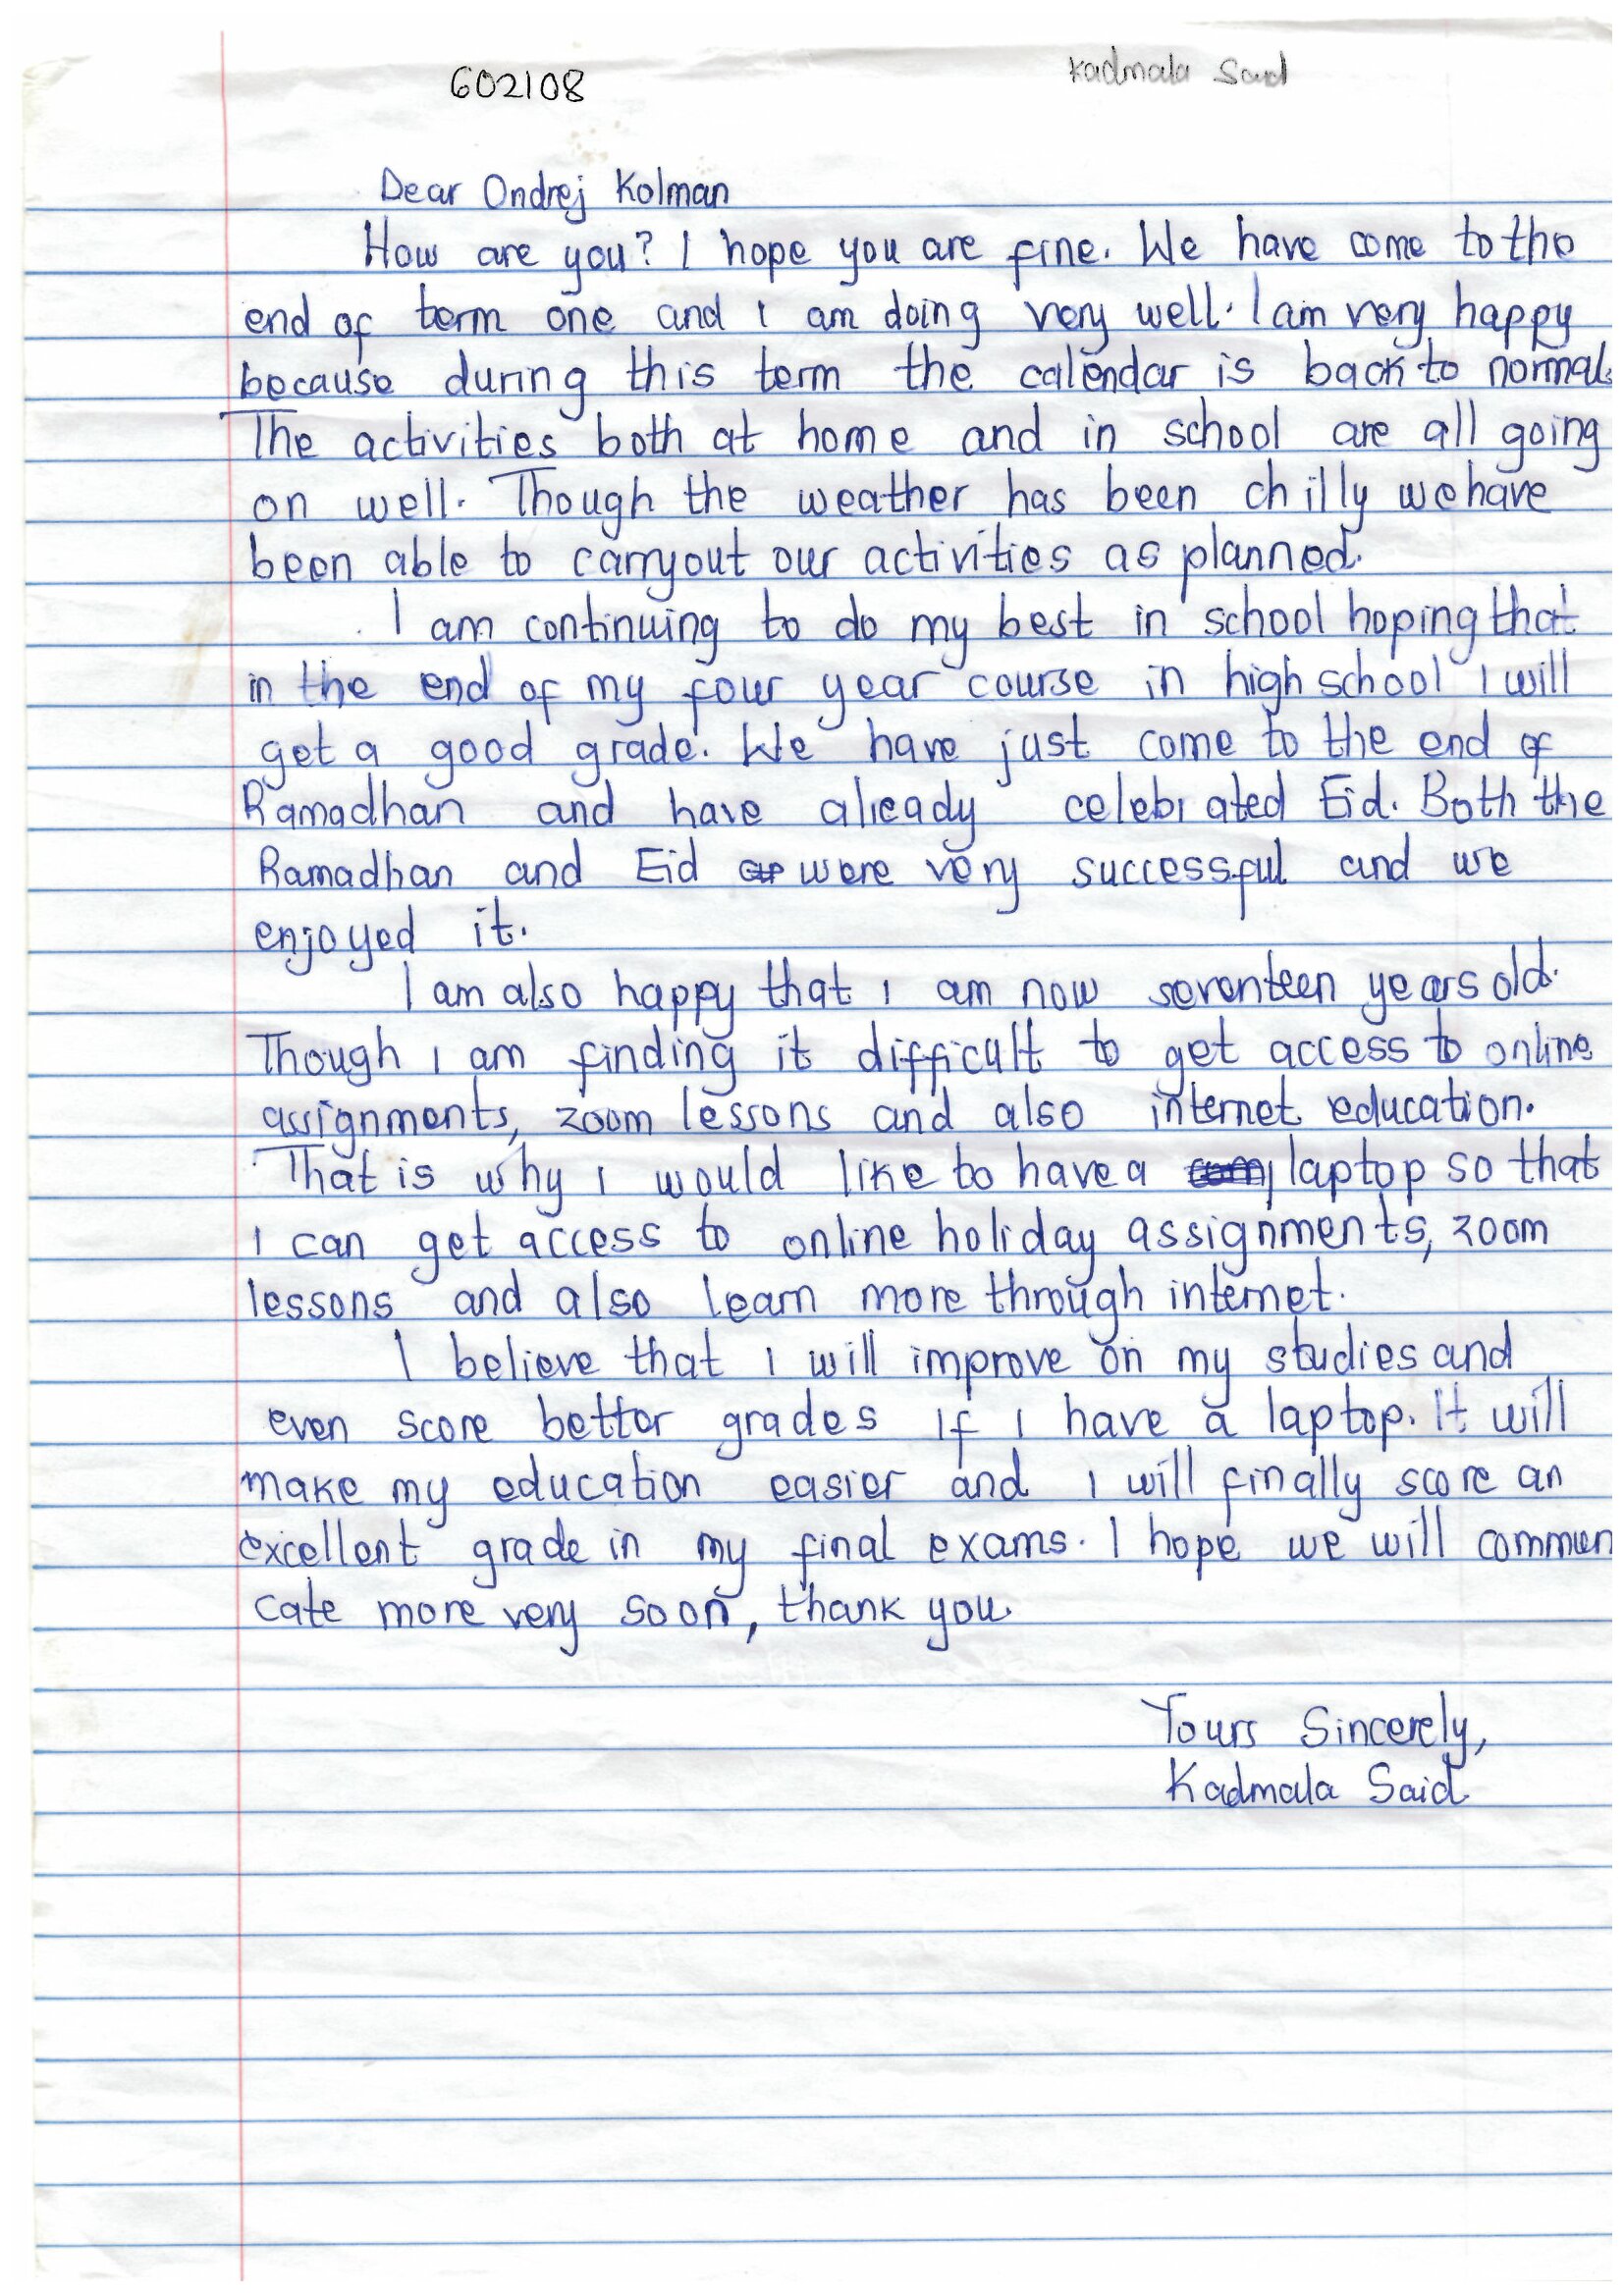 602108
Kadmala Said
Dear Ondrej Kolman
How are you? I hope you are fine. We have come to the
end of term one and I am doing very well. I am very happy
because during this term the calendar is back to normal.
The activities both at home and in school are all going
on well. Though the weather has been chilly we have
been able to carryout our activities as planned.
I am continuing to do my best in school hoping that
in the end of my four year course in high school I will
get a good grade. We have just come to the end of
Ramadhan and have already celebrated Eid. Both the
Ramadhan and Eid were very successful and we
enjoyed it.
I am also happy that I am now seventeen years old.
Though I am finding it difficult to get access to online
assignments, zoom lessons and also internet education.
That is why I would like to have a laptop so that
I can get access to online holiday assignments, zoom
lessons and also learn more through internet.
I believe that I will improve on my studies and
even score better grades If I have a laptop. It will
make my education easier and I will finally score an
excellent grade in my final exams. I hope we will commun
cate more very soon, thank you.
Yours Sincerely,
Kadmala Said